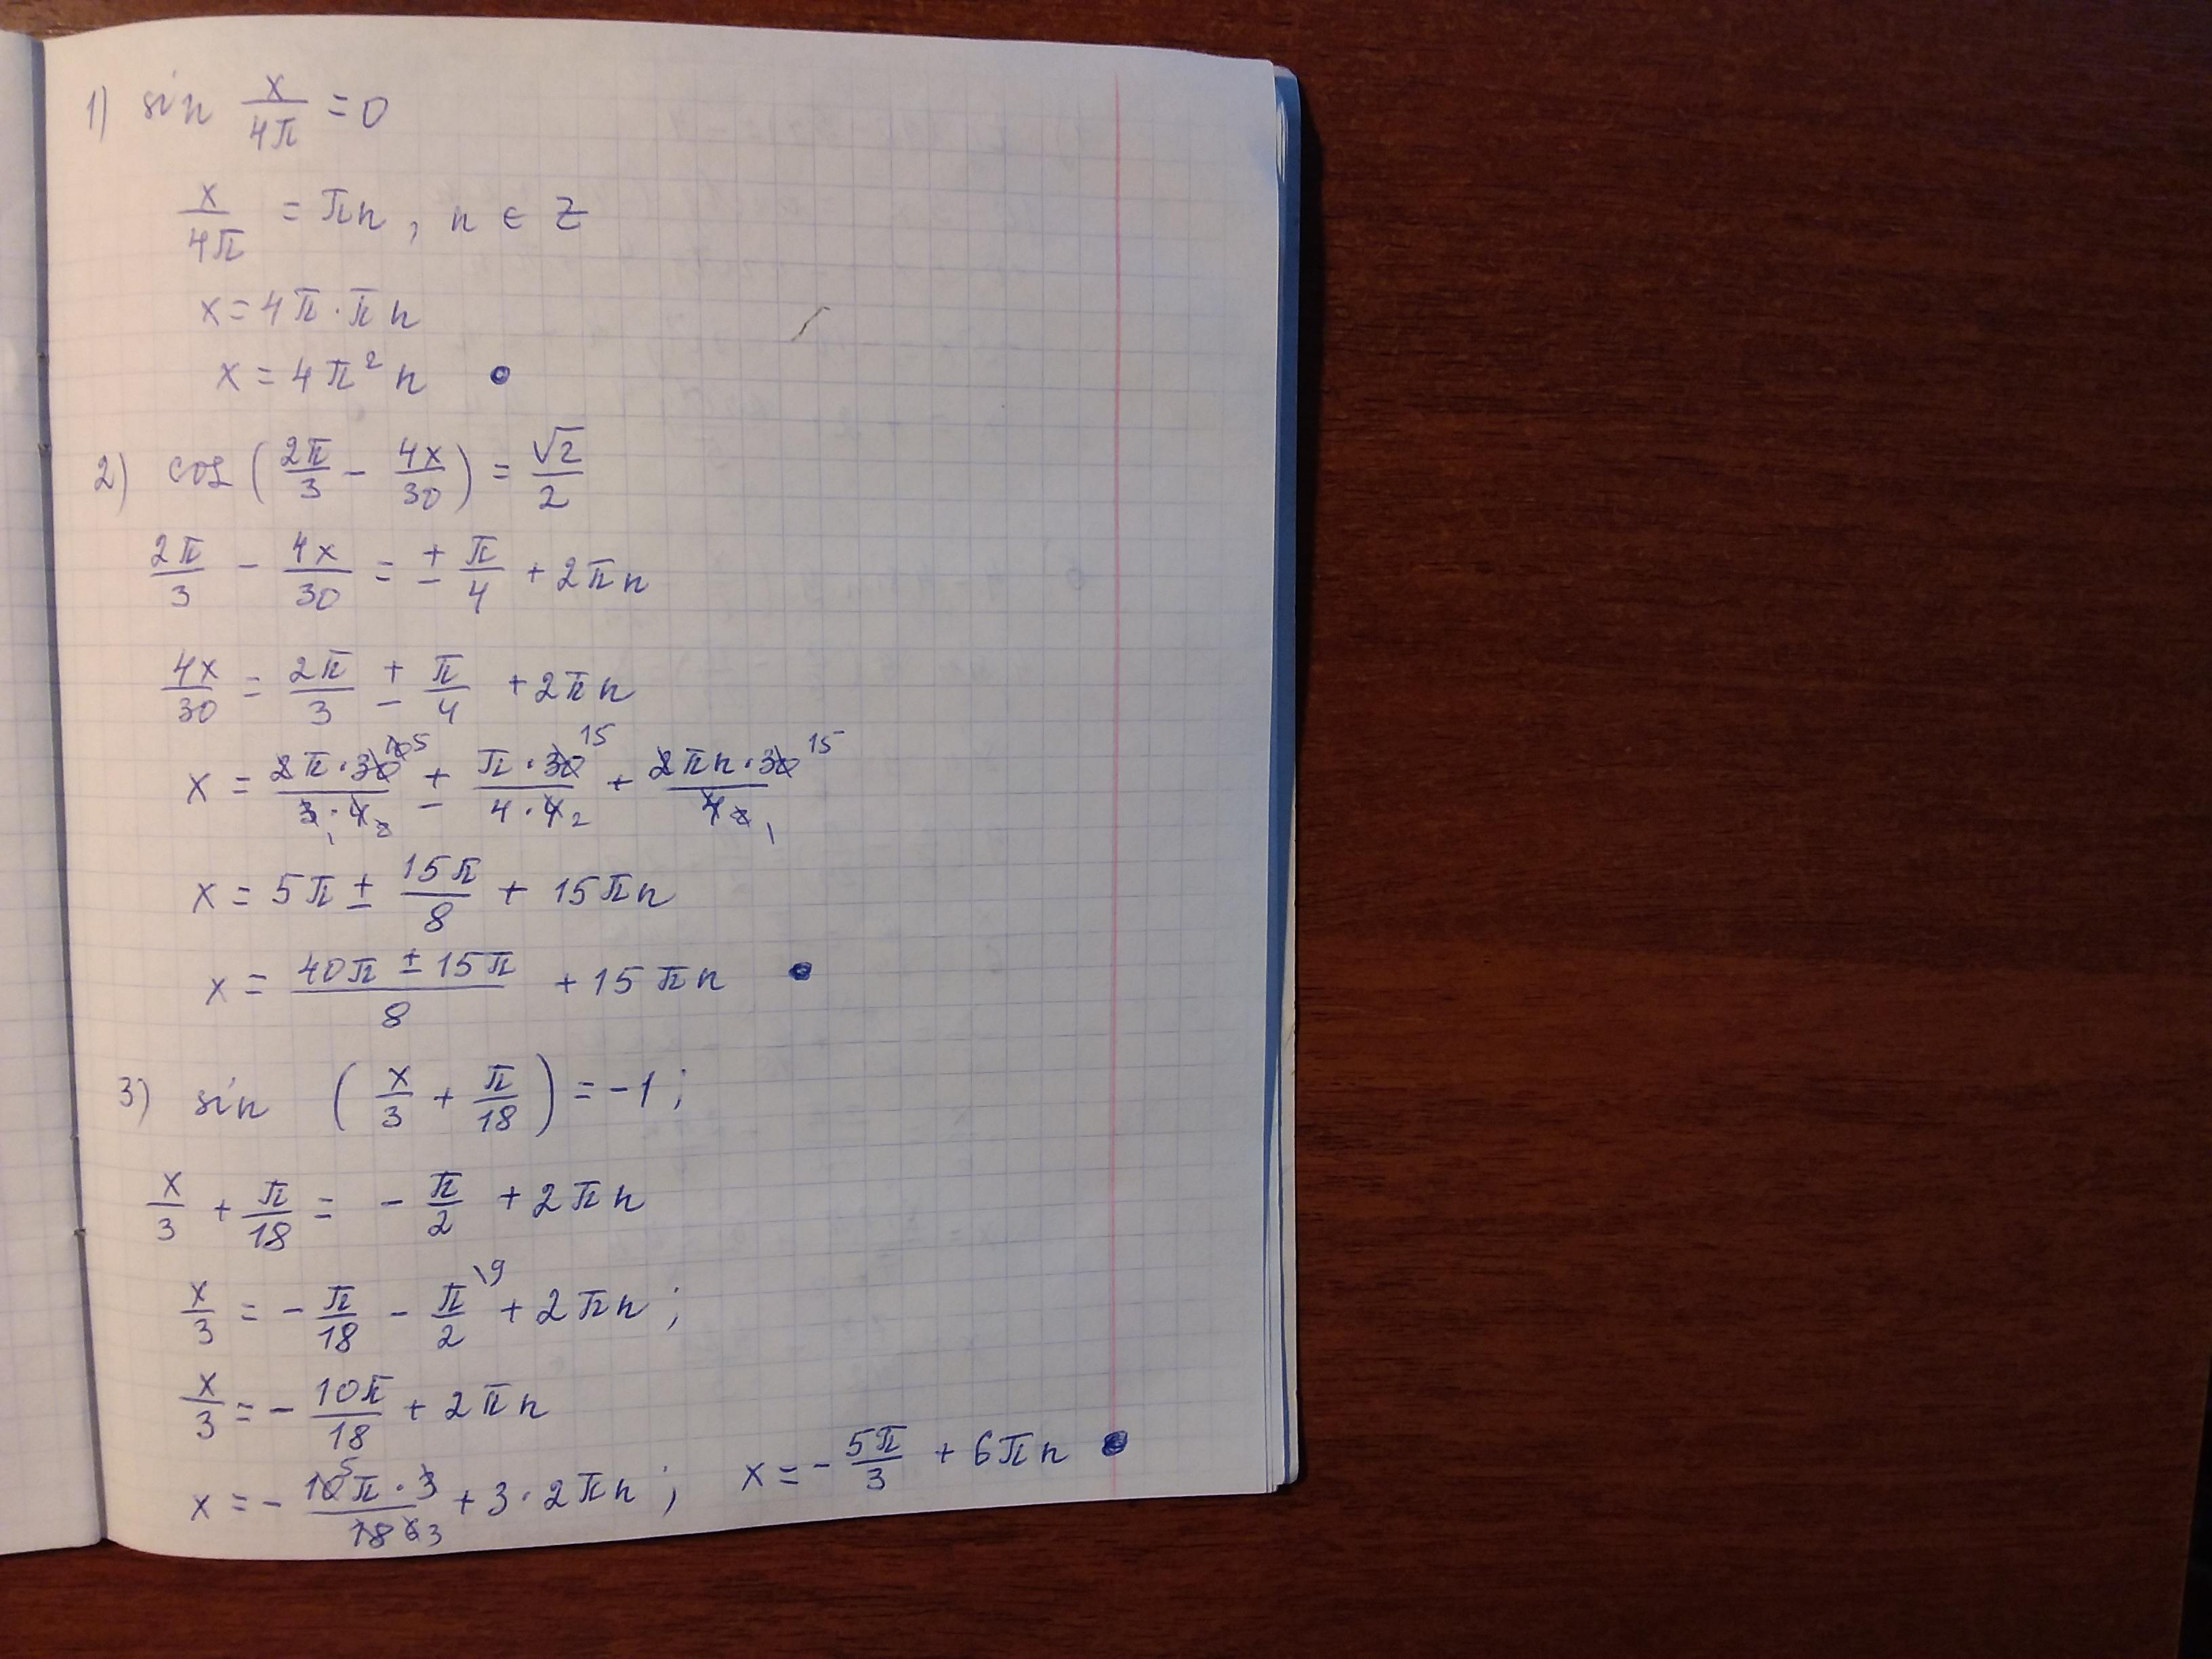 1) sin x/4π = 0
x/4π = πn, n ∈ Z
x = 4π · πn
x = 4π² n
2) cos (2π/3 - 4x/30) = √2/2
2π/3 - 4x/30 = ± π/4 + 2πn
4x/30 = 2π/3 ± π/4 + 2πn
x = 2π·30/3·4 ± π·30/4·4 + 2πn·30/4
x = 5π ± 15π/8 + 15πn
x = 40π ± 15π/8 + 15πn
3) sin (x/3 + π/18) = -1;
x/3 + π/18 = - π/2 + 2πn
x/3 = - π/18 - π/2 \9 + 2πn;
x/3 = - 10π/18 + 2πn
x = - 10π·3/18 + 3·2πn; x = - 5π/3 + 6πn